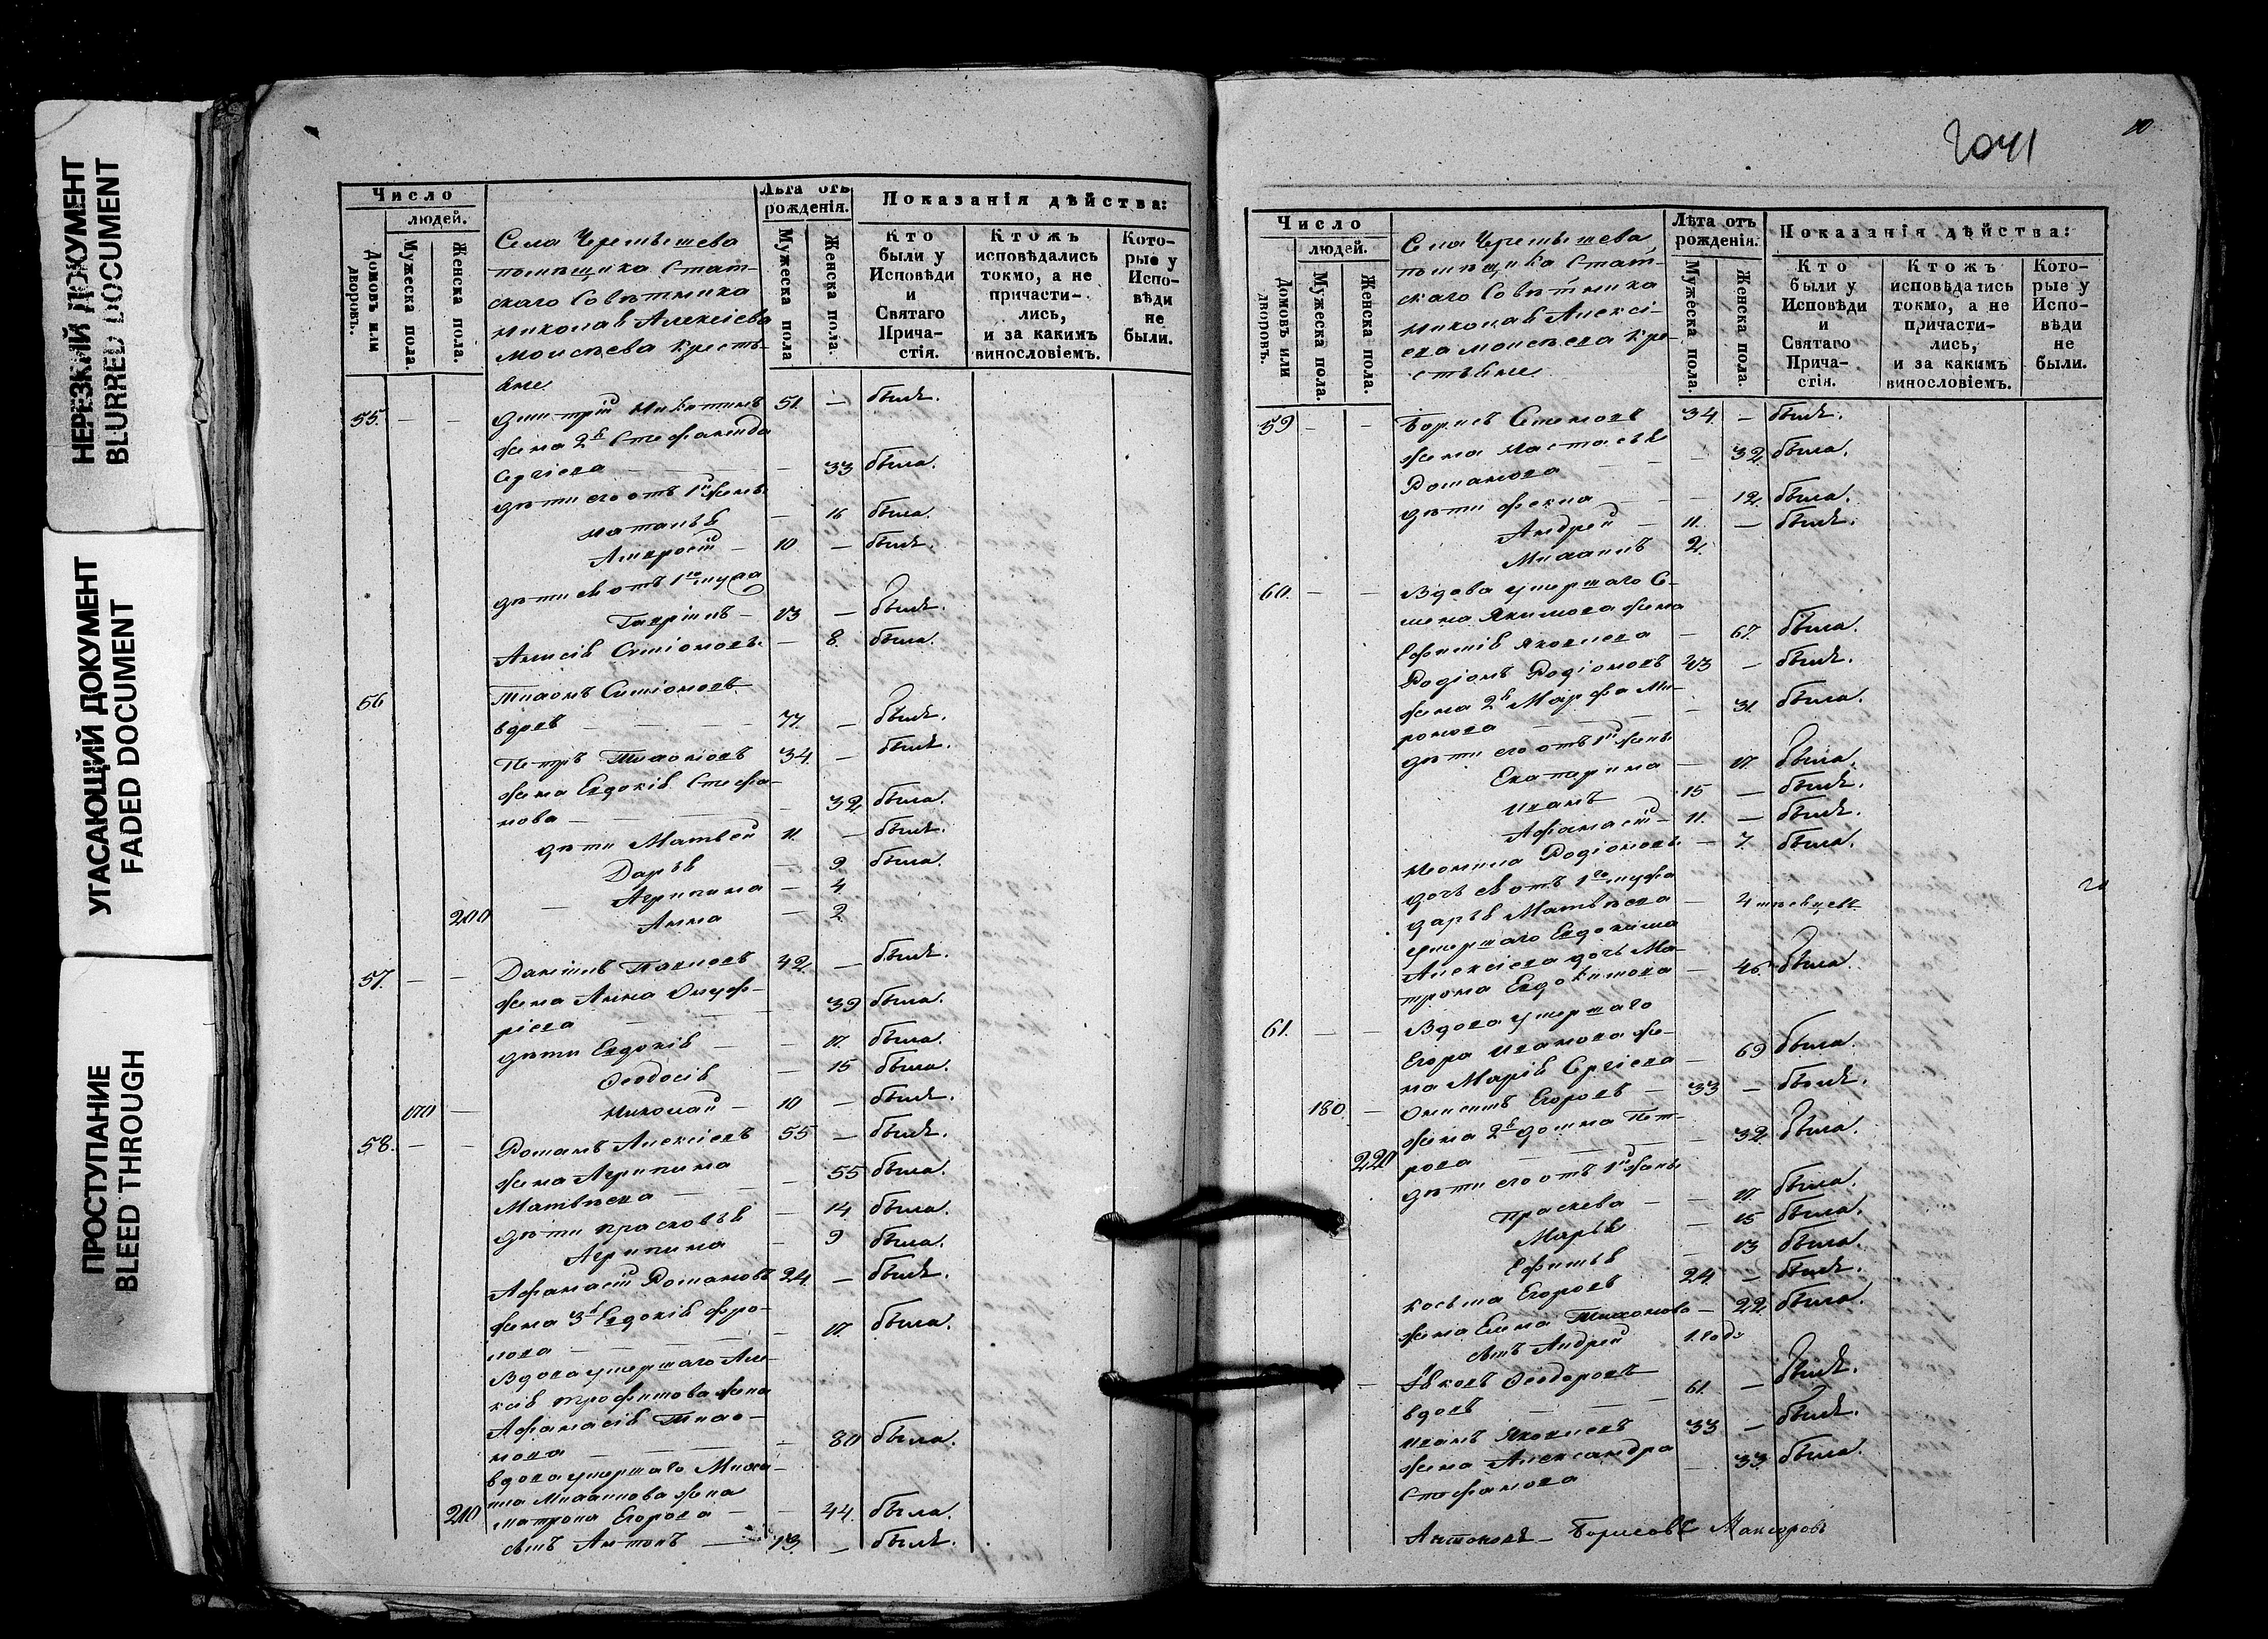 НЕРЕЗКИЙ ДОКУМЕНТ
BLURRED DOCUMENT
УГАСАЮЩИЙ ДОКУМЕНТ
FADED DOCUMENT
ПРОСТУПАНИЕ
BLEED THROUGH
Число
людей.
Домовъ или дворовъ.
Мужеска пола.
Женска пола.
Села Черемышева
помѣщика Стат-
скаго Совѣтника
Николая Алексѣева
Моисѣева крестъ-
яне
Лѣта отъ рожденія.
Мужеска пола
Женска пола.
Показанія дѣйства:
Кто были у Исповѣди и Святаго Прича-стія.
Ктожъ исповѣдались токмо, а не причасти-лись, и за какимъ винословіемъ.
Кото-рые у Испо-вѣди не были.
55. — — Димитрій Никитинъ 51. — былъ.
жена 2я Стефанида
Сергіева — 33 была.
дѣти его отъ 1й жены
Наталья — 16 была.
Амвросій — 10 — былъ.
дѣти ея отъ 1го мужа
Гавріилъ — 13 — былъ.
Анисія Симіонова — 8. была.
56 Тихонъ Симіоновъ
вдовъ — 77. — былъ.
Петръ Тихоновъ 34. — былъ.
жена Евдокія Стефа-
нова — 32 была.
дѣти Матвей 11. — былъ.
Дарья — 9 была.
Агрипина — 4.
200 Анна — 2.
57. — — Даніилъ Павловъ 42. — былъ.
жена Анна Онуф-
ріева — 39 была.
дѣти Евдокія — 17. была.
Ѳеодосія — 15 была.
170 — Николай — 10 — былъ.
58. — — Романъ Алексѣевъ 55 — былъ.
жена Агрипина
Матвѣева — 55 была.
дѣти Прасковья — 14. была.
Агрипина — 9 была.
Афанасій Романовъ 24. — былъ.
жена 3я Евдокія Фро-
лова — 17. была.
Вдова умершаго Але-
ксія Трофимова жена
Афанасія Тихо-
нова — 80 была.
вдова умершаго Миха-
ила Михаилова жена
210 Матрона Егорова — 44. была.
сынъ Антонъ — 13. — былъ.
2041
10
Число
людей.
Домовъ или дворовъ.
Мужеска пола.
Женска пола.
Села Черемышева
помѣщика Стат-
скаго Совѣтника
Николая Алексі-
ева Моисѣева кре-
стьяне
Лѣта отъ рожденія.
Мужеска пола.
Женска пола.
Показанія дѣйства:
Кто были у Исповѣди и Святаго Прича-стія.
Ктожъ исповѣдались токмо, а не причасти-лись, и за какимъ винословіемъ.
Кото-рые у Испо-вѣди не были.
59 — — Борисъ Семеновъ 34. — былъ.
жена Настасья
Романова — 32. была.
дѣти Фекла — 12. была.
Андрей — 11. — былъ.
Михаилъ 2.
60. — — Вдова умершаго Се-
мена Якимова жена
Ефимія Яковлева — 67. была.
Родіонъ Родіоновъ 43 — былъ.
жена 2я Марфа Ми-
ронова — 31. была.
дѣти его отъ 1й жены
Екатерина — 17. была.
Иванъ 15 — былъ.
Афанасій — 11. — былъ.
Неонила Родіонова — 7. была.
дочь ея отъ 1го мужа
Дарья Матвѣева — 4 мѣсяцевъ
умершаго Евдокима
Алексіева дочь Ма-
трона Евдокимова — 46. была.
61. — — Вдова умершаго
Егора Иванова же-
на Марія Сергіева — 69 была.
180 — Онисимъ Егоровъ — 33 — былъ.
жена 2я Домна Пет-
220 рова — 32. была.
дѣти его отъ 1й жены
Праскева — 17. была.
Марья — 15 была.
Ефимья — 13 была.
Косьма Егоровъ 24. — былъ.
жена Елена Тихонова — 22. была.
сынъ Андрей 1. годъ
— Яковъ Ѳеодоровъ
вдовъ — 61. — былъ.
Иванъ Яковлевъ 33 — былъ.
жена Александра
Стефанова — 33. была.